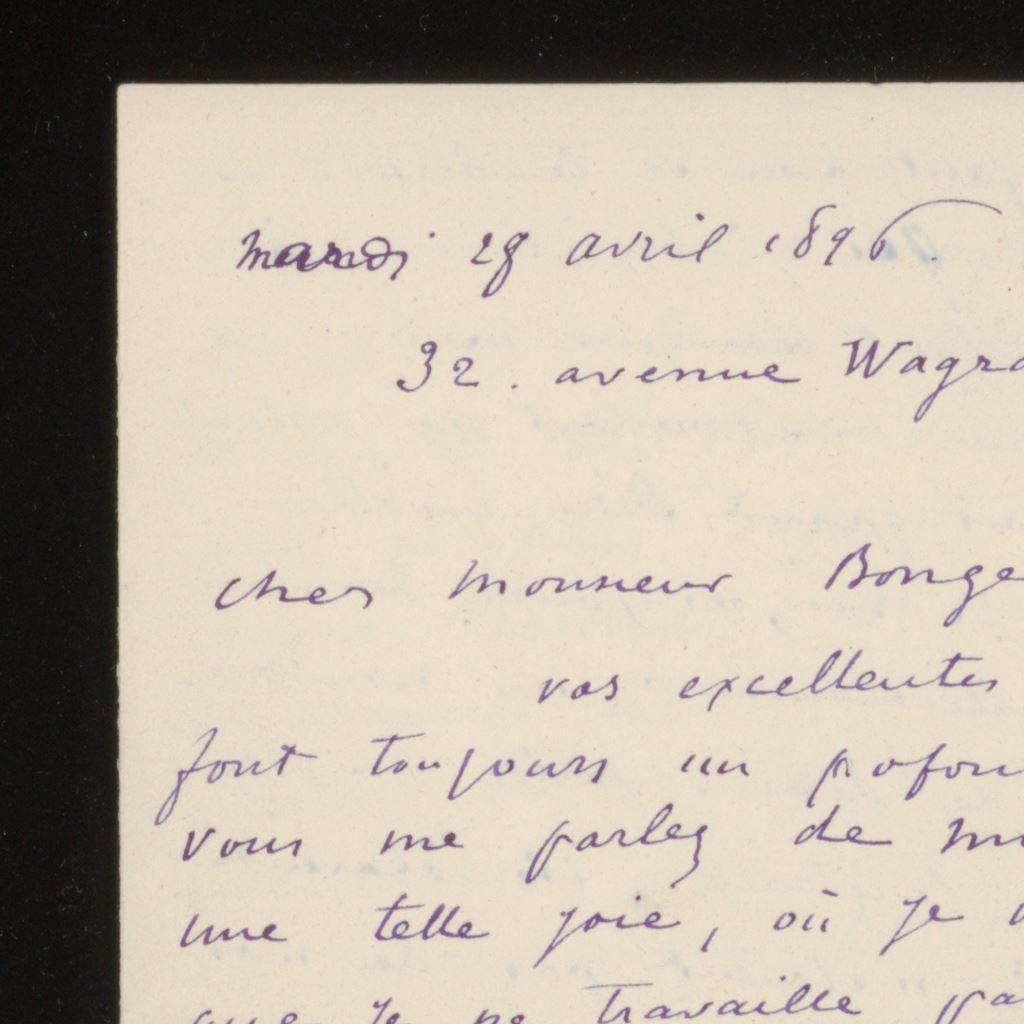 mardi 28 avril 1896.
32. avenue Wagra
cher Monsieur Bonge
vos excellentes
font toujours un profon
vous me parlez de m
une telle joie, où je
que je ne travaille pa